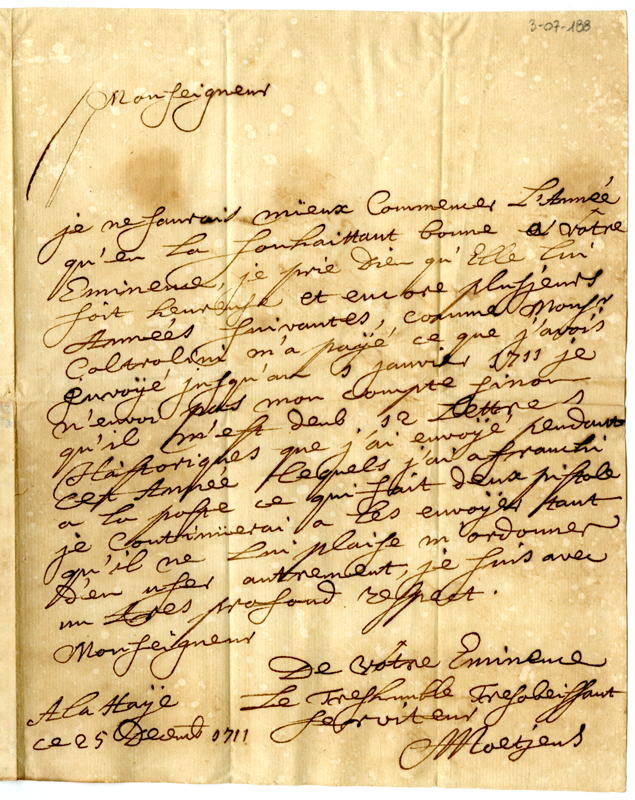 3-07-188
Monseigneur
je ne saurais mieux Commencer L'Année
qu'en La souhaittant bonne a vôtre
Eminence, je prie Dieu qu'Elle lui
soit heureuse et encore plusieurs
Années suivantes, comme Monsr
Coltrolini m'a payé ce que j'avois
Envoÿé jusqu'au 1 janvier 1711 je
n'envoi pas mon compte sinon
qu'il m'est deub 12 Lettres
Historiques que j'ai envoyé pendant
cest Année lequels j'ai afranchi
a la poste ce qui fait deux pistole
je Continüerai a Les envoyer tant
qu'il ne Lui plaise m'ordonner
D'en user autrement, je suis avec
un tres profond respect.
Monseigneur
De vôtre Eminence
Le Treshumble Tresobeissant
Serviteur
A La Haÿe
ce 25 Decemb 1711
Moetjens